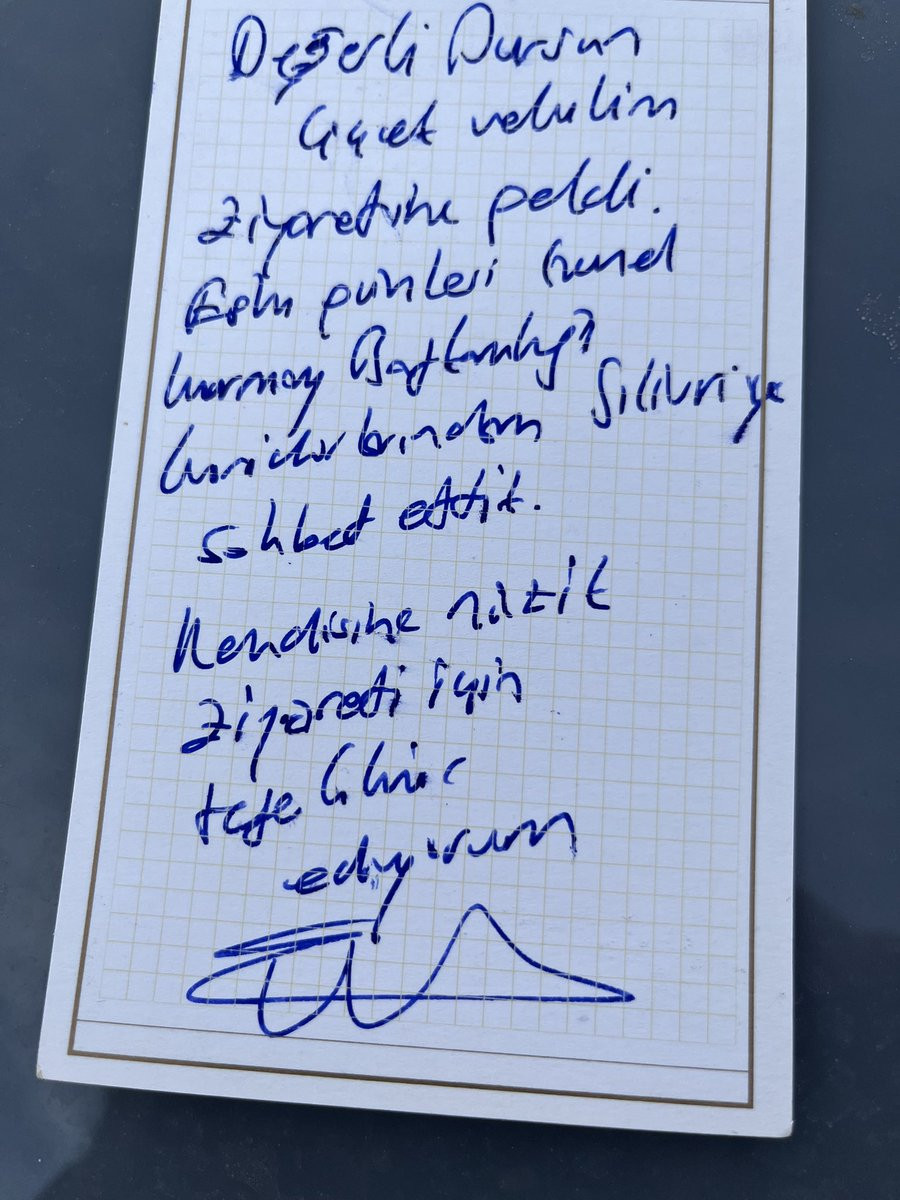 Değerli Dursun
Çiçek vekilim
ziyaretime geldi.
Eski günleri Genel
kurmay Başkanlığı
koridorlarından Silivriye
sohbet ettik.
Kendisine nazik
ziyareti için
teşekkür
ediyorum